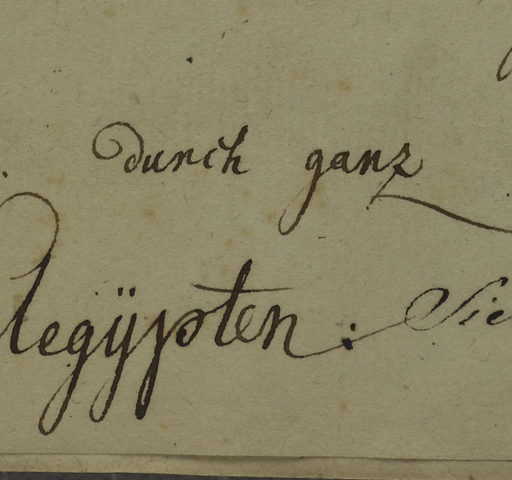 durch ganz
Aegÿpten. Sie